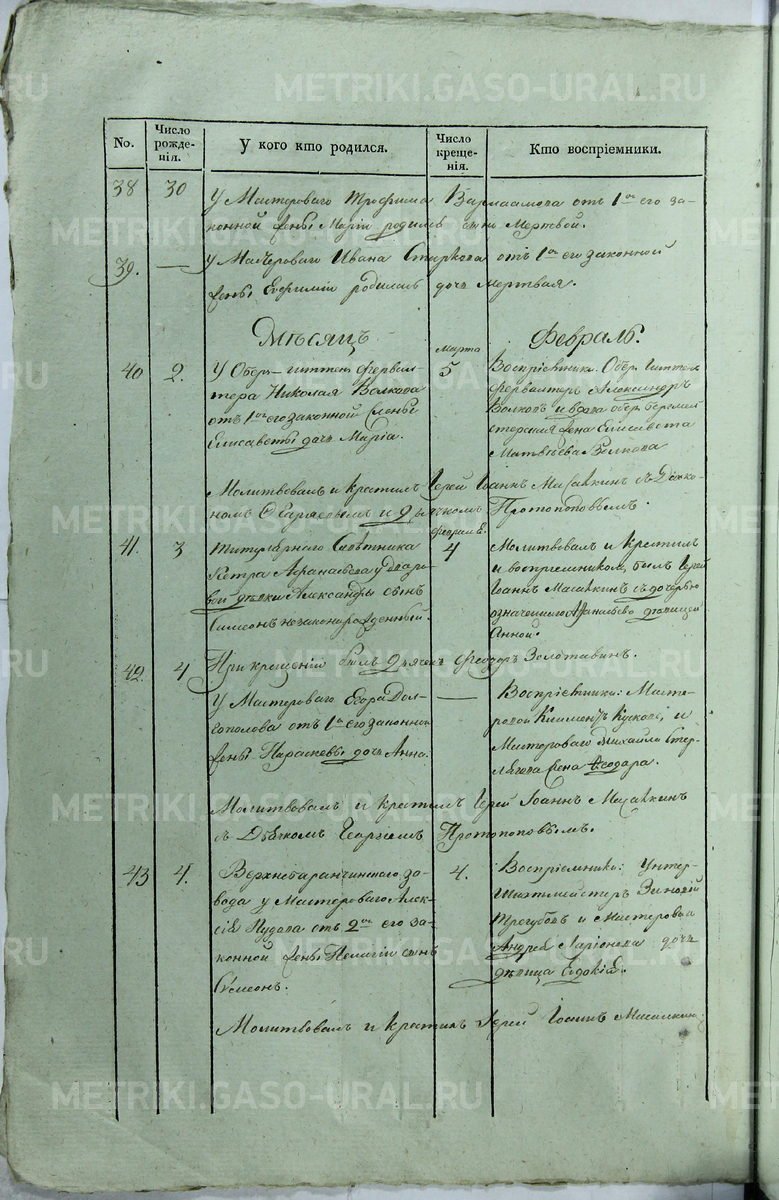 METRIKI.GASO-URAL.RU
No.
Число рожде-нія.
У кого кто родился.
Число креще-нія.
Кто воспріемники.
38 30 У Мастероваго Трофима Варлаамова отъ 1го его за-
конной жены Маріи родилъ сынъ Мертвой.
39. — У Мастероваго Ивана отъ 1го его законной
жены Евфиміи родилась дочь мертвая.
Мѣсяцъ Февраль.
40 2. У Обер-гиттен фервал-
тера Николая Волкова
отъ 1го его законной жены
Елисаветы дочь Марія.
Марта
5
Воспріемники. Обер. Гиттен
фервалтеръ Александръ
Волковъ и вдова обер берг
жена Елисавета
Матвѣева Волкова
Молитвовалъ и крестилъ Іерей Іоаннъ Масалкинъ съ Дьяко-
номъ и Дьячкомъ Протопоповымъ.
41. 3 Титулярнаго Совѣтника
Петра Афанасьева у
дѣвки Александры сынъ
Симеонъ незаконнорожденный.
Февраля
4
Молитвовалъ и крестилъ
и воспріемникомъ былъ Іерей
Іоаннъ Масалкинъ съ дочерью
означеннаго Афанасьева дѣвицей
Анной.
При крещеніи былъ Дьячекъ Феодоръ Золотавинъ.
42. 4 У Мастероваго Егора Дол-
гополова отъ 1го его законной
жены Параскевы дочь Анна.
—
Воспріемники: Масте-
ровой Климентъ и
Мастероваго Михайла Стер-
лягова жена Феодора.
Молитвовалъ и крестилъ Іерей Іоаннъ Масалкинъ
съ Дьячкомъ Георгіемъ Протопоповымъ.
43 4. Верхнебаранчинскаго за-
вода у Мастероваго Алек-
сѣя отъ 2го его за-
конной жены Пелагіи сынъ
Симеонъ.
4.
Воспріемники: Унтер-
шихтмейстеръ Зиновій
Трегубовъ и Мастероваго
Андрея Ларіонова дочь
дѣвица Евдокія.
Молитвовалъ и крестилъ Іерей Іоаннъ Масалкинъ